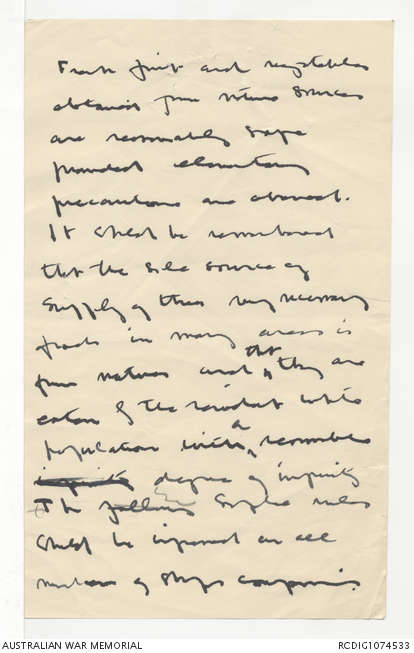 Fresh fruit and vegetables
obtained from native sources
are reasonably safe
provided elementary
precautions are observed.
It should be remembered
that the sole source of
supply of these very necessary
foods in many areas is
from natives and that they are
eaten by the resident white
population with a reasonable
impunity degree of impunity
The following simple rules
should be imposed on all
members of ships companies.
AUSTRALIAN WAR MEMORIAL
RCDIG1074533